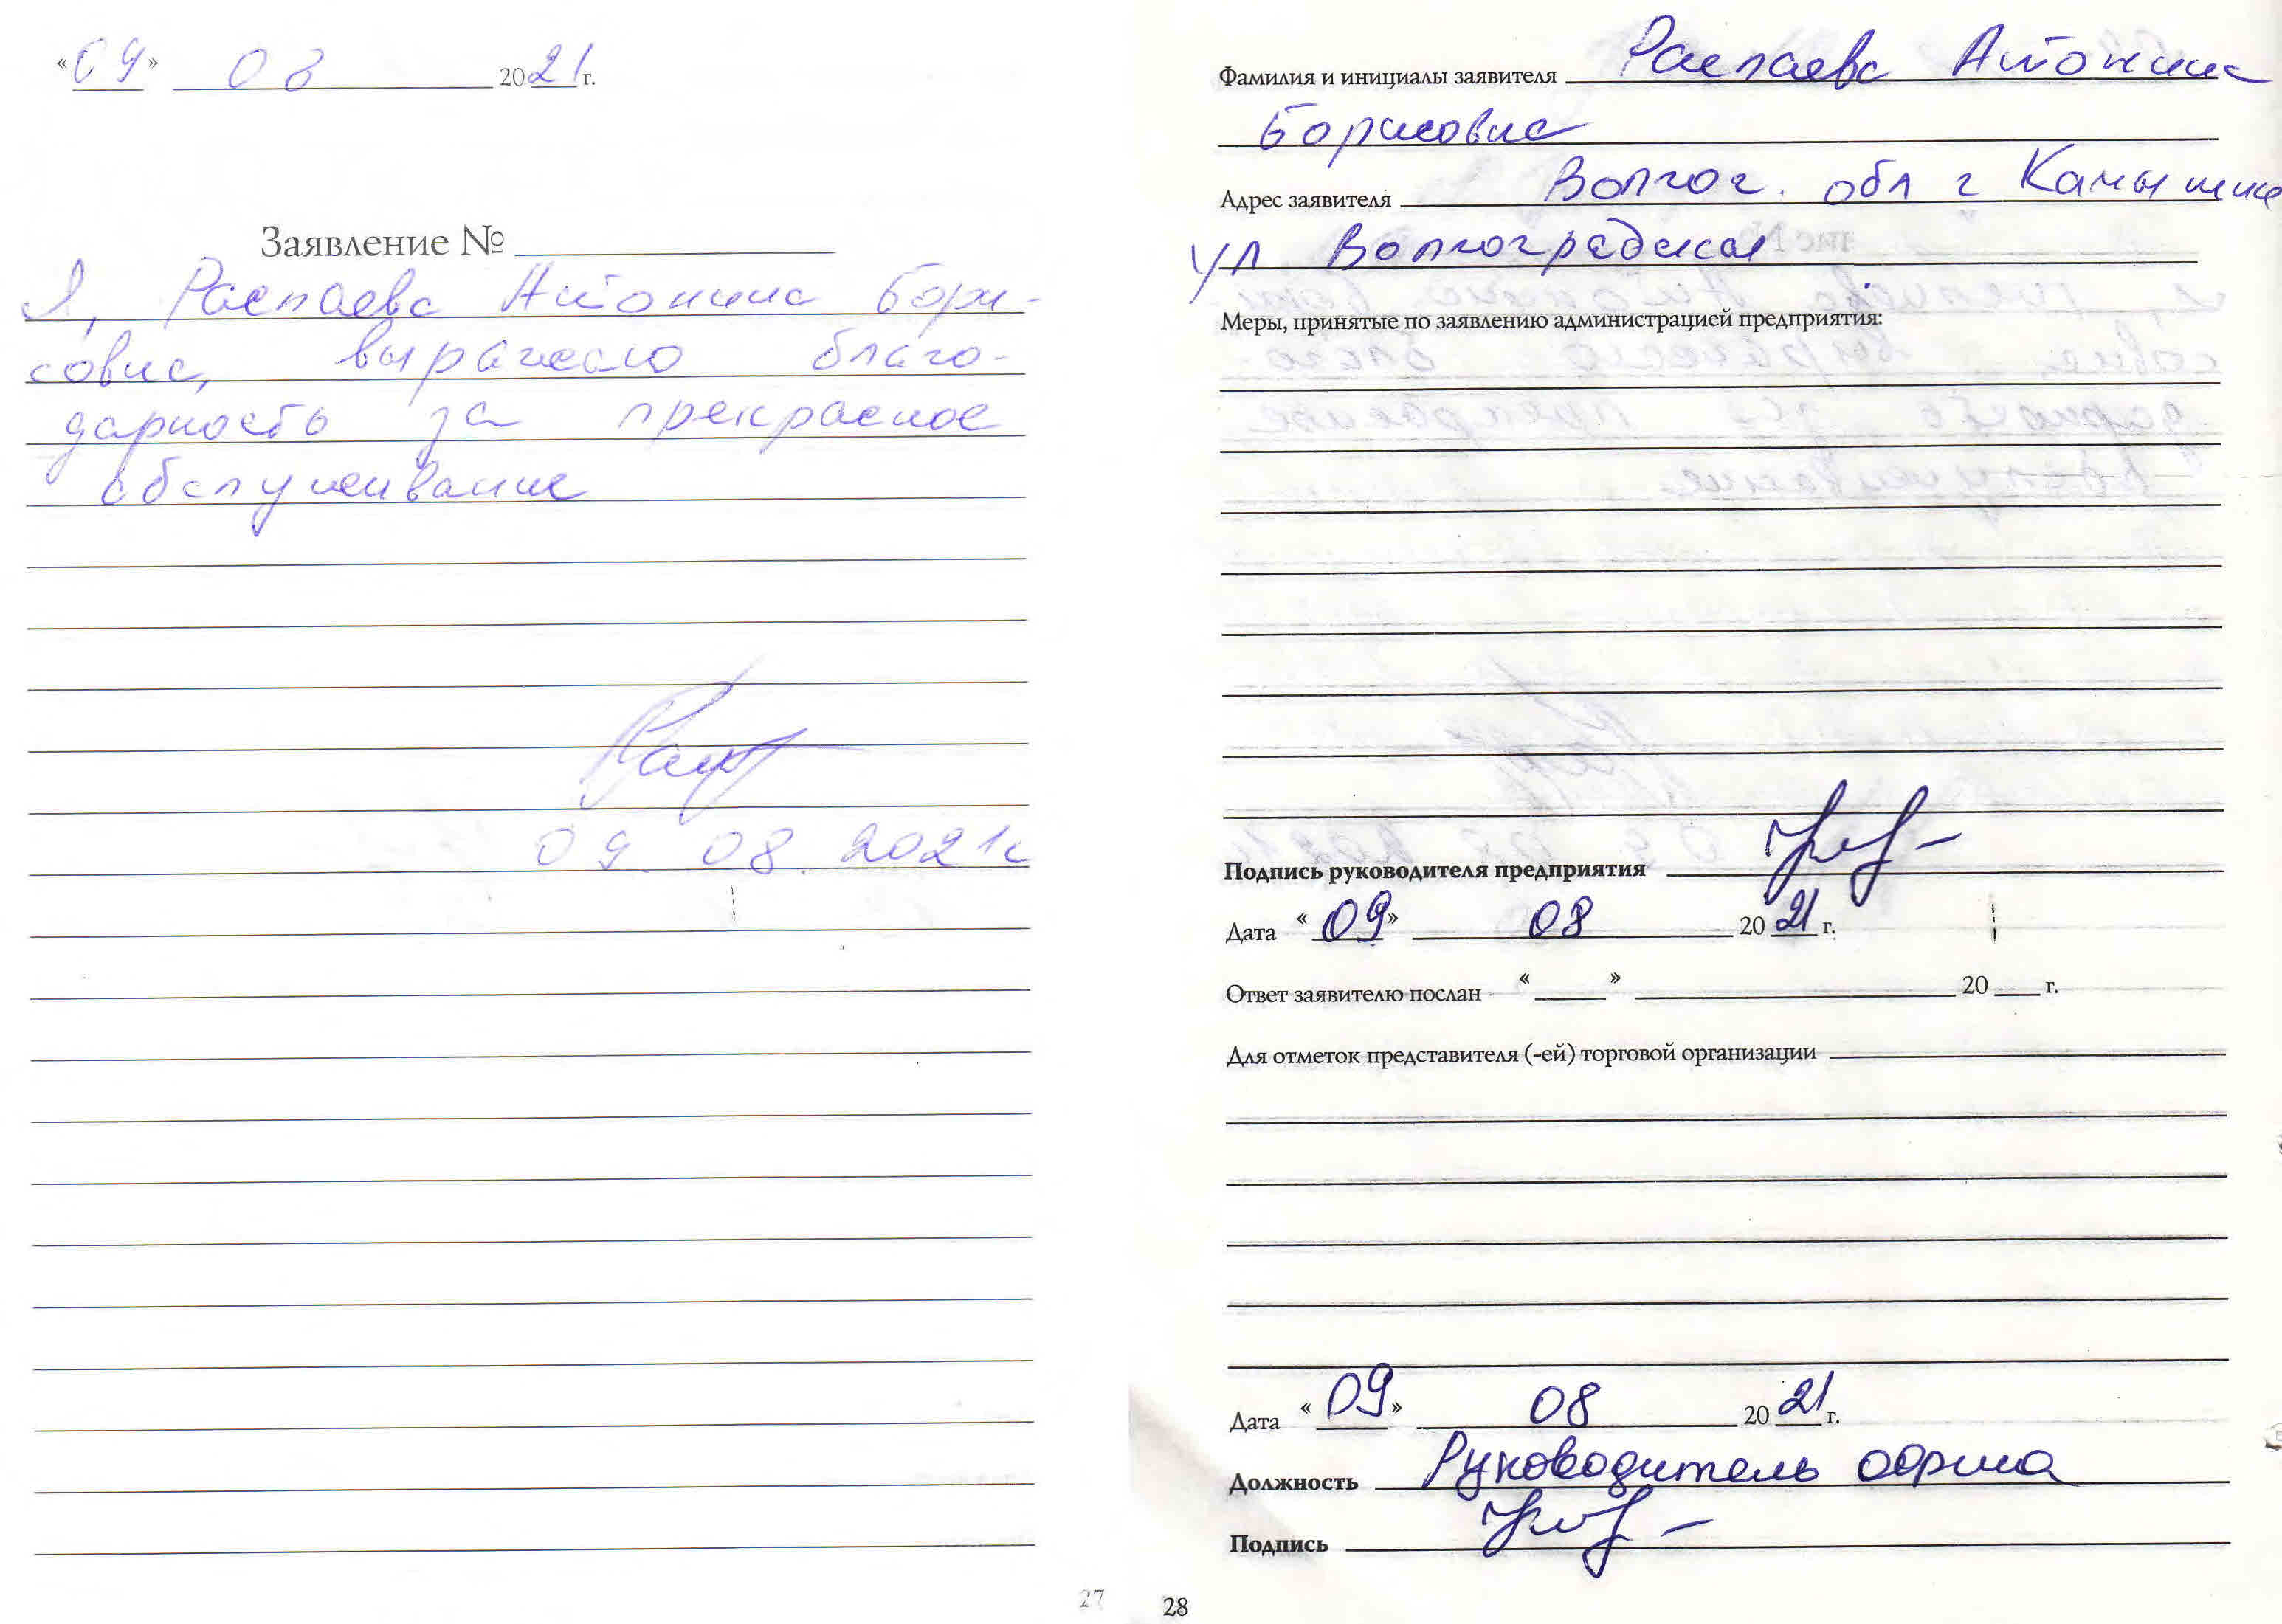 «09» 08 2021 г.
Заявление №
Я, Распаева Антонина Бори-
совна, выражаю благо-
дарность за прекрасное
обслуживание
09. 08. 2021г
27
Фамилия и инициалы заявителя Распаева Антонина
Борисовна
Адрес заявителя Волгог. обл г Камышин
ул Волгоградская
Меры, принятые по заявлению администрацией предприятия:
Подпись руководителя предприятия
Дата «09» 08 2021 г.
Ответ заявителю послан « » 20 г.
Для отметок представителя (-ей) торговой организации
Дата «09» 08 2021 г.
Должность Руководитель офиса
Подпись
28